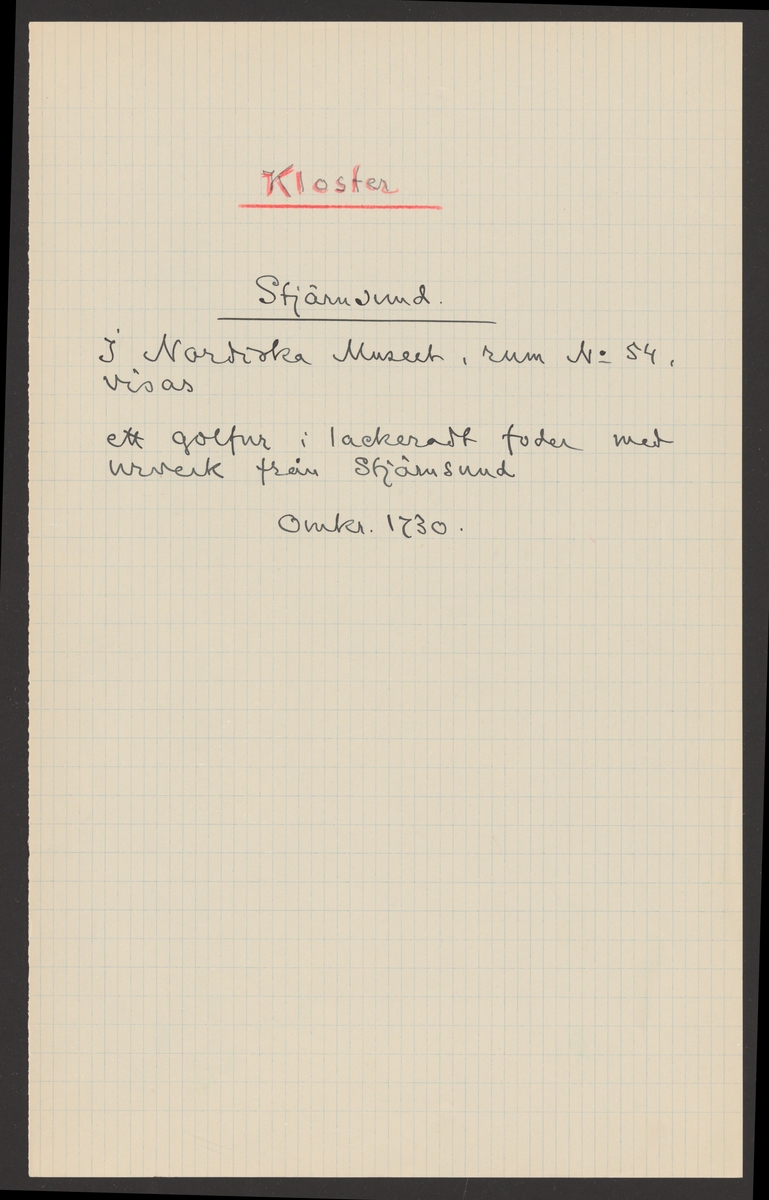 Kloster
Stjärnsund.
I Nordiska Museet, rum No 54,
visas
ett golfur i lackeradt foder med
urverk från Stjärnsund
Omkr. 1730.